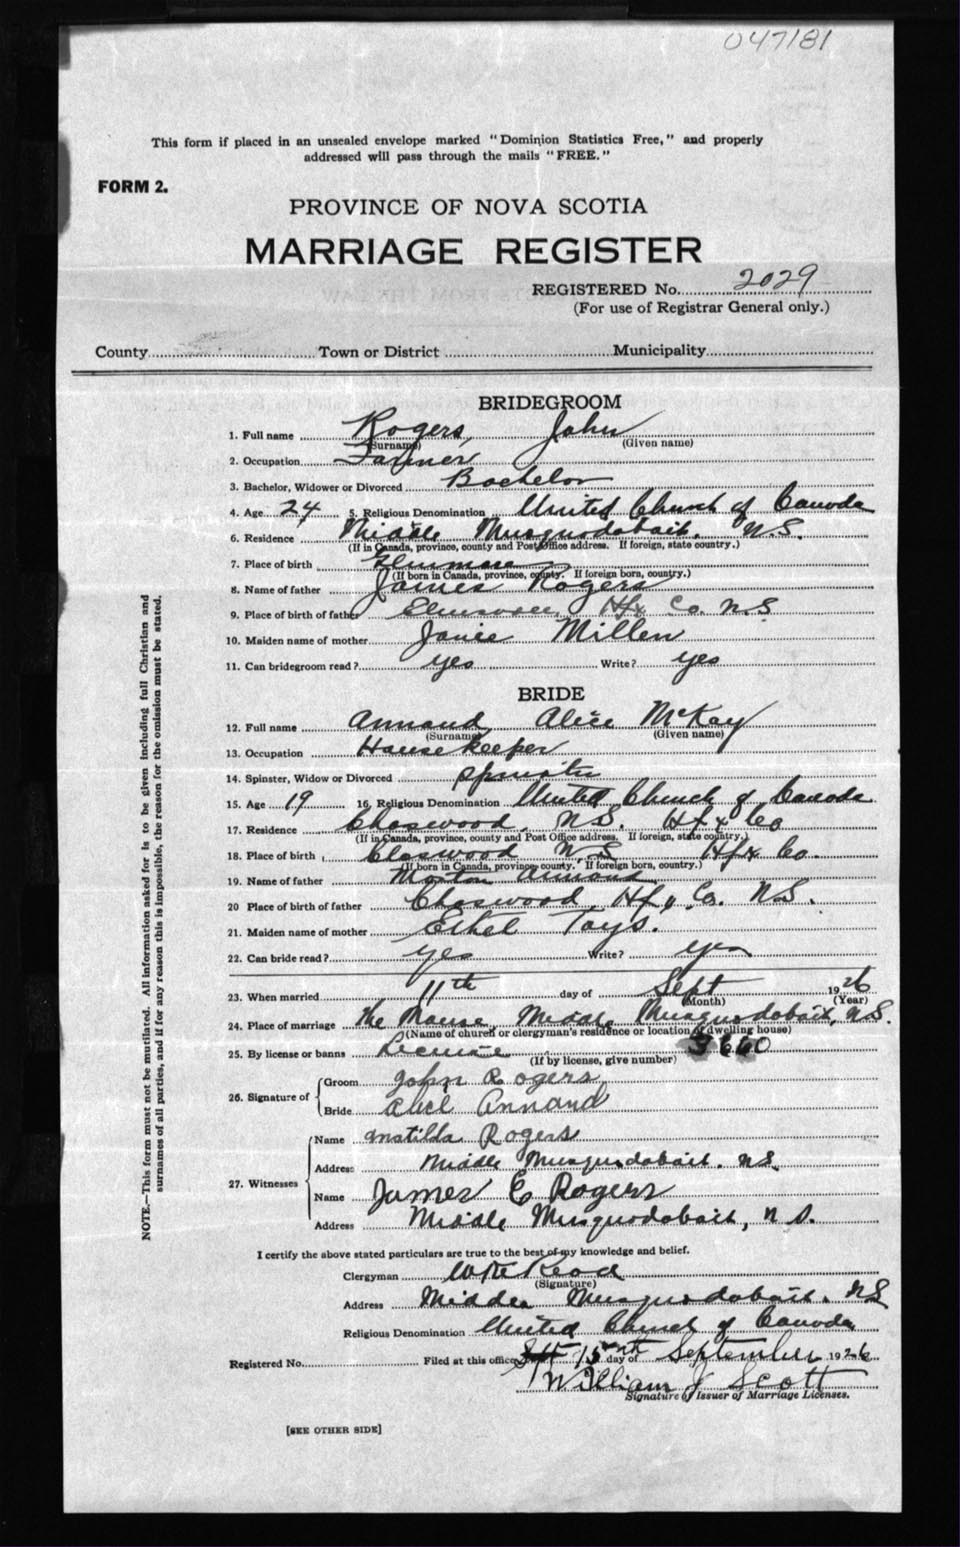 047181
This form if placed in an unsealed envelope marked "Dominion Statistics Free," and properly
addressed will pass through the mails "FREE."
FORM 2.
PROVINCE OF NOVA SCOTIA
MARRIAGE REGISTER
REGISTERED No. 2029
(For use of Registrar General only.)
County Town or District Municipality
BRIDEGROOM
1. Full name Rogers, John
(Surname) (Given name)
2. Occupation Farmer
3. Bachelor, Widower or Divorced Bachelor
4. Age 24 5. Religious Denomination United Church of Canada
6. Residence Middle Musquodoboit, N.S.
(If in Canada, province, county and Post Office address. If foreign, state country.)
7. Place of birth
(If born in Canada, province, county. If foreign born, country.)
8. Name of father James Rogers
9. Place of birth of father Hfx Co. N.S
10. Maiden name of mother Janie Millen
11. Can bridegroom read? yes Write? yes
BRIDE
12. Full name Annand, Alice McKay
(Surname) (Given name)
13. Occupation House keeper
14. Spinster, Widow or Divorced Spinster
15. Age 19 16. Religious Denomination United Church of Canada
17. Residence Chaswood, N.S. Hfx Co
(If in Canada, province, county and Post Office address. If foreign, state country.)
18. Place of birth Chaswood N.S Hfx Co.
(If born in Canada, province county. If foreign born, country.)
19. Name of father Annand
20 Place of birth of father Chaswood, Hfx Co. N.S.
21. Maiden name of mother Ethel Tays.
22. Can bride read? yes Write? yes
23. When married 11th day of Sept 1926
(Month) (Year)
24. Place of marriage The Manse, Middle Musquodoboit, N.S.
(Name of church or clergyman's residence or location of dwelling house)
25. By license or banns License 3660
(If by license, give number)
26. Signature of Groom John Rogers
Bride Alice Annand
27. Witnesses Name Matilda Rogers
Address Middle Musquodoboit. N.S.
Name James E Rogers
Address Middle Musquodoboit, N.S.
I certify the above stated particulars are true to the best of my knowledge and belief.
Clergyman Read
(Signature)
Address Middle Musquodoboit. N.S
Religious Denomination United Church of Canada
Registered No. Filed at this office 15th day of September 1926
William J Scott
Signature of Issuer of Marriage Licenses.
[SEE OTHER SIDE]
NOTE.—This form must not be mutilated. All information asked for is to be given including full Christian and
surnames of all parties, and if for any reason this is impossible, the reason for the omission must be stated.